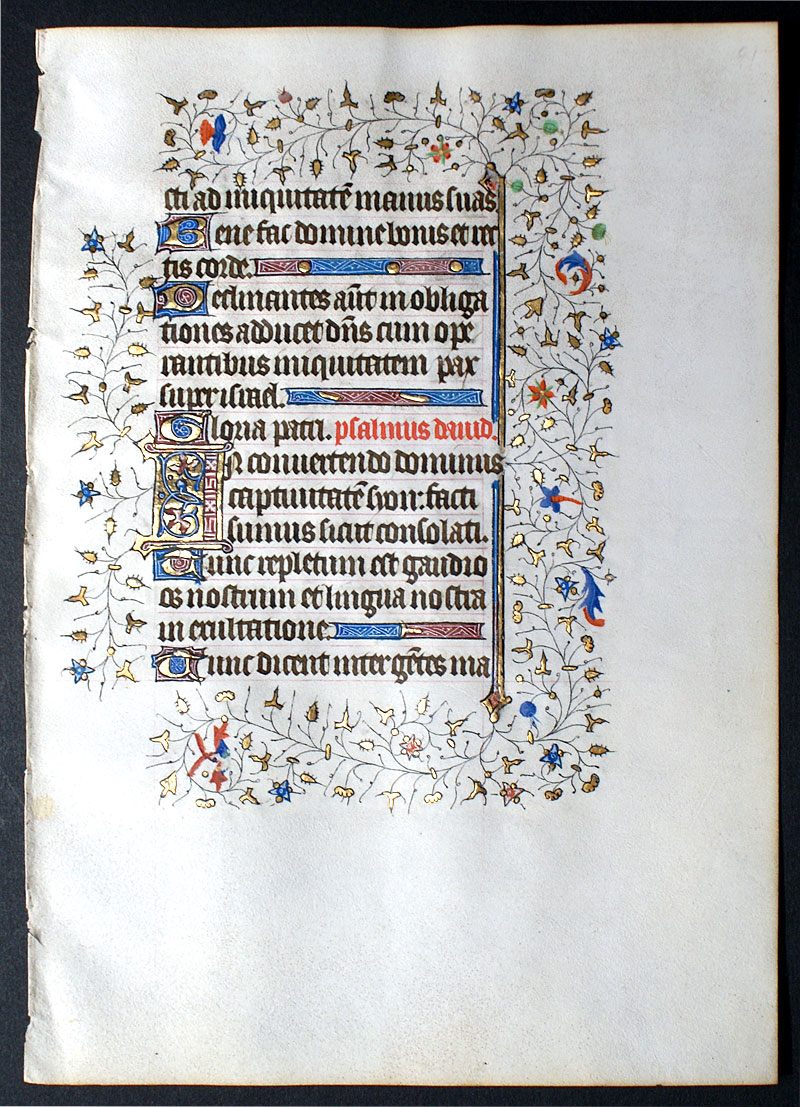 cti ad iniquitatē manus suas
Bene fac domine bonis et rec
tis corde.
Declinantes aūt in obliga
tiones adducet dn̄s cum ope
rantibus iniquitatem pax
super israel.
Gloria patri. psalmus dauid.
In conuertendo dominus
captiuitatē syon: facti
sumus sicut consolati.
Tunc repletum est gaudio
os nostrum et lingua nostra
in exultatione.
Tunc dicent inter gētes ma